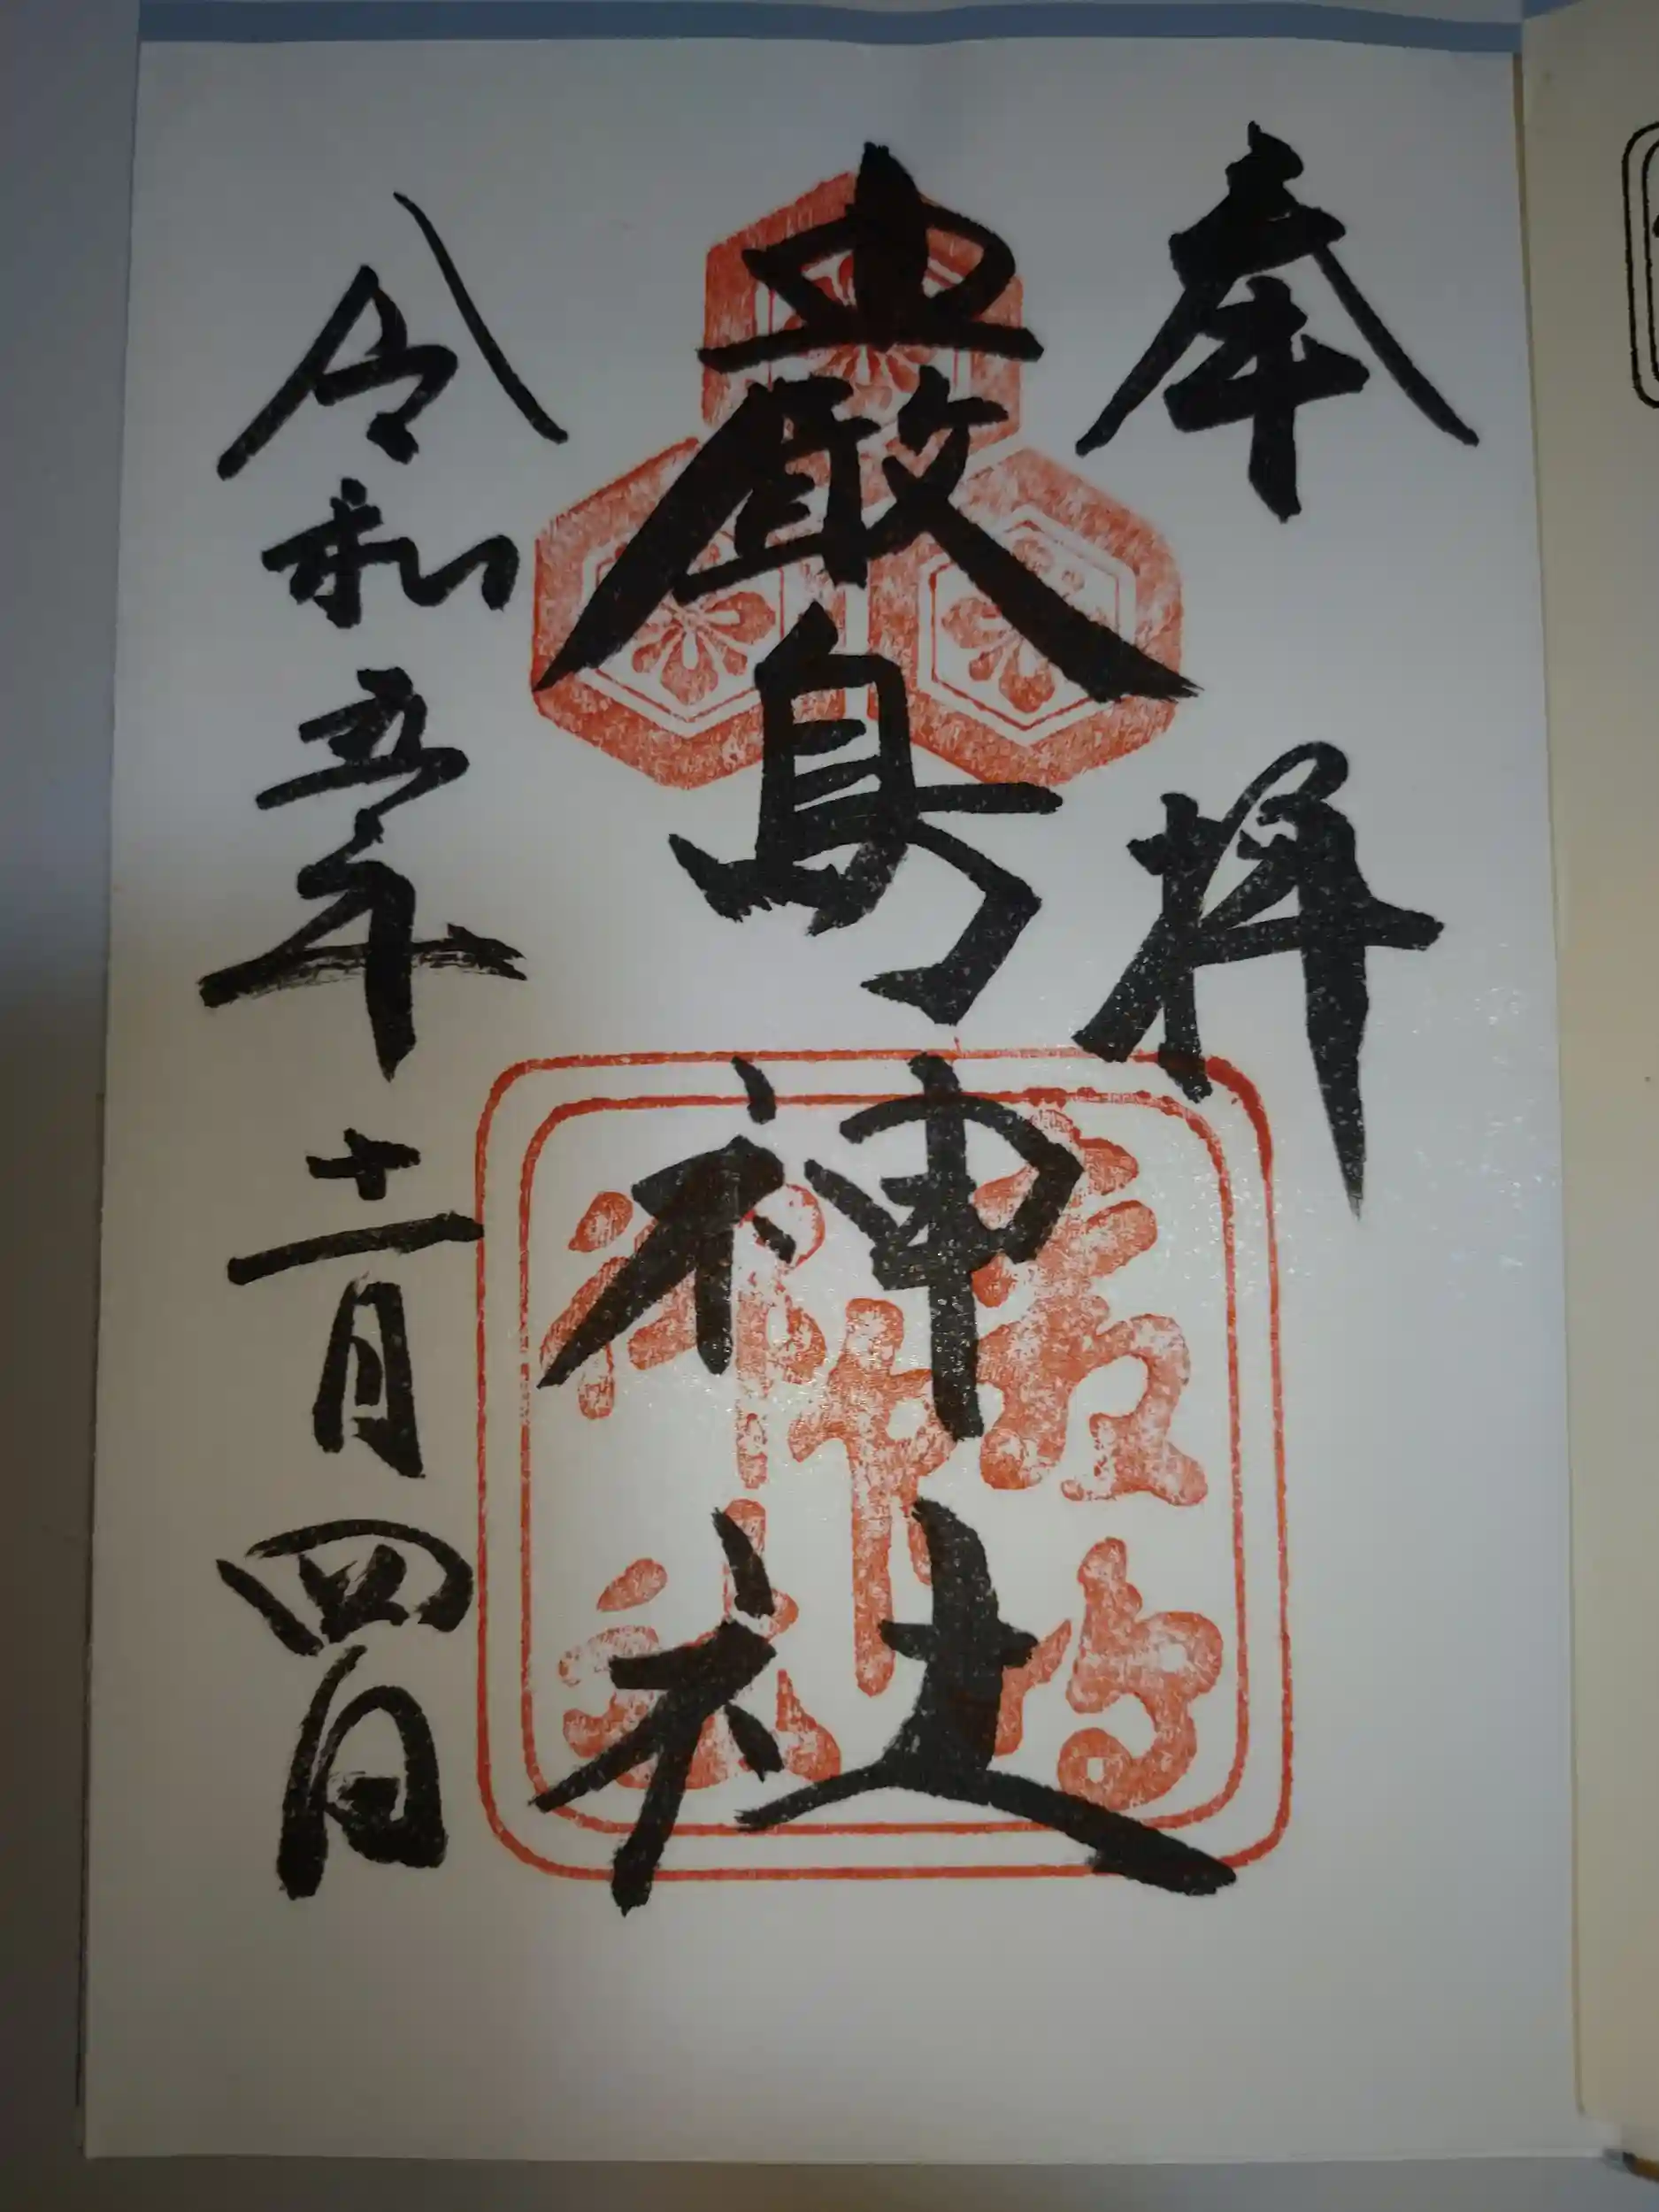 奉拝
厳島神社
令和五年十一月四日
嚴島
神社